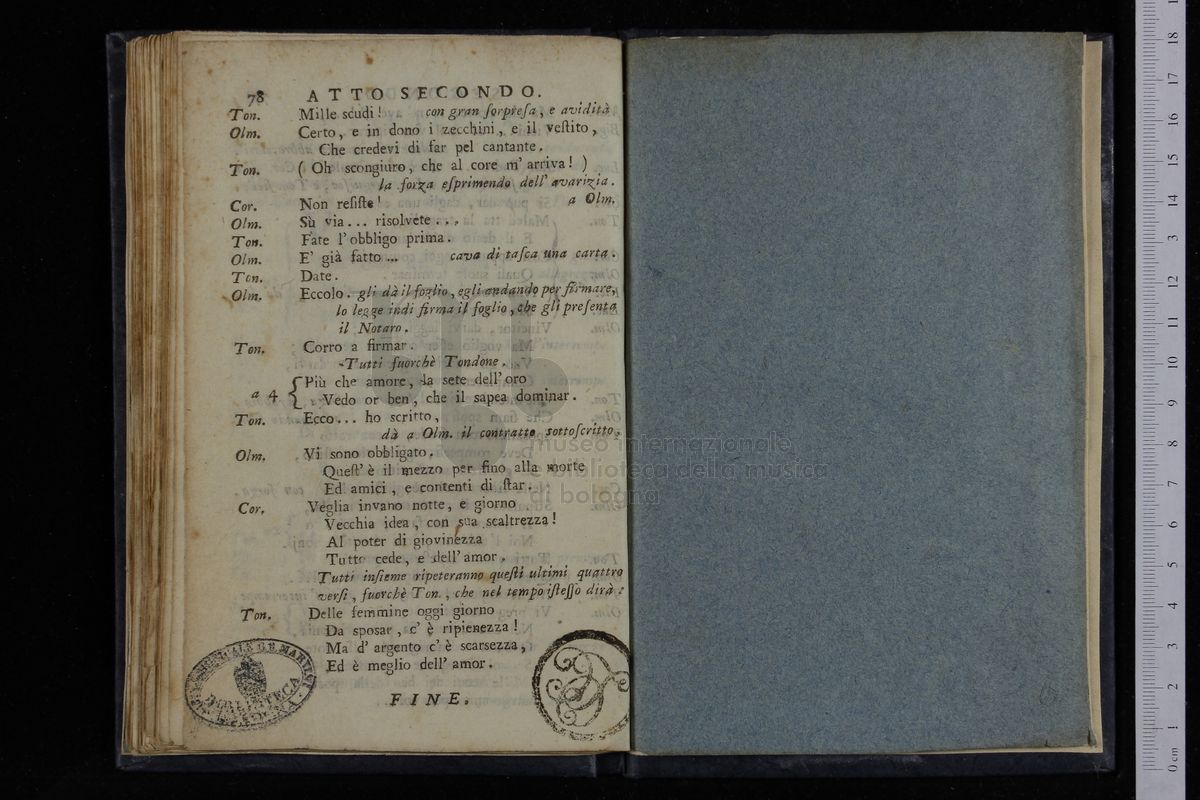 78 ATTO SECONDO.
Ton. Mille scudi! con gran ſorpreſa, e avidità
Olm. Certo, e in dono i zecchini, e il veſtito,
Che credevi di far pel cantante.
Ton. ( Oh scongiuro, che al core m' arriva! )
la forza eſprimendo dell' avarizia.
Cor. Non reſiſte! a Olm.
Olm. Sù via... risolvete...
Ton. Fate l' obbligo prima.
Olm. E' già fatto... cava di taſca una carta.
Ton. Date.
Olm. Eccolo. gli dà il foglio, egli andando per firmare,
lo legge indi firma il foglio, che gli preſenta
il Notaro.
Ton. Corro a firmar.
-Tutti fuorchè Tondone.
a 4 { Più che amore, la sete dell' oro
Vedo or ben, che il sapea dominar.
Ton. Ecco... ho scritto,
dà a Olm. il contratto sottoſcritto.
Olm. Vi sono obbligato.
Queſt' è il mezzo per fino alla morte
Ed amici, e contenti di ſtar.
Cor. Veglia invano notte, e giorno
Vecchia idea, con sua scaltrezza!
Al poter di giovinezza
Tutto cede, e dell' amor.
Tutti inſieme ripeteranno queſti ultimi quattro
verſi, fuorchè Ton., che nel tempo iſteſſo dirà:
Ton. Delle femmine oggi giorno
Da sposar, c' è ripienezza!
Ma d' argento c' è scarsezza,
Ed è meglio dell' amor.
FINE.
museo internazionale
e biblioteca della musica
di bologna